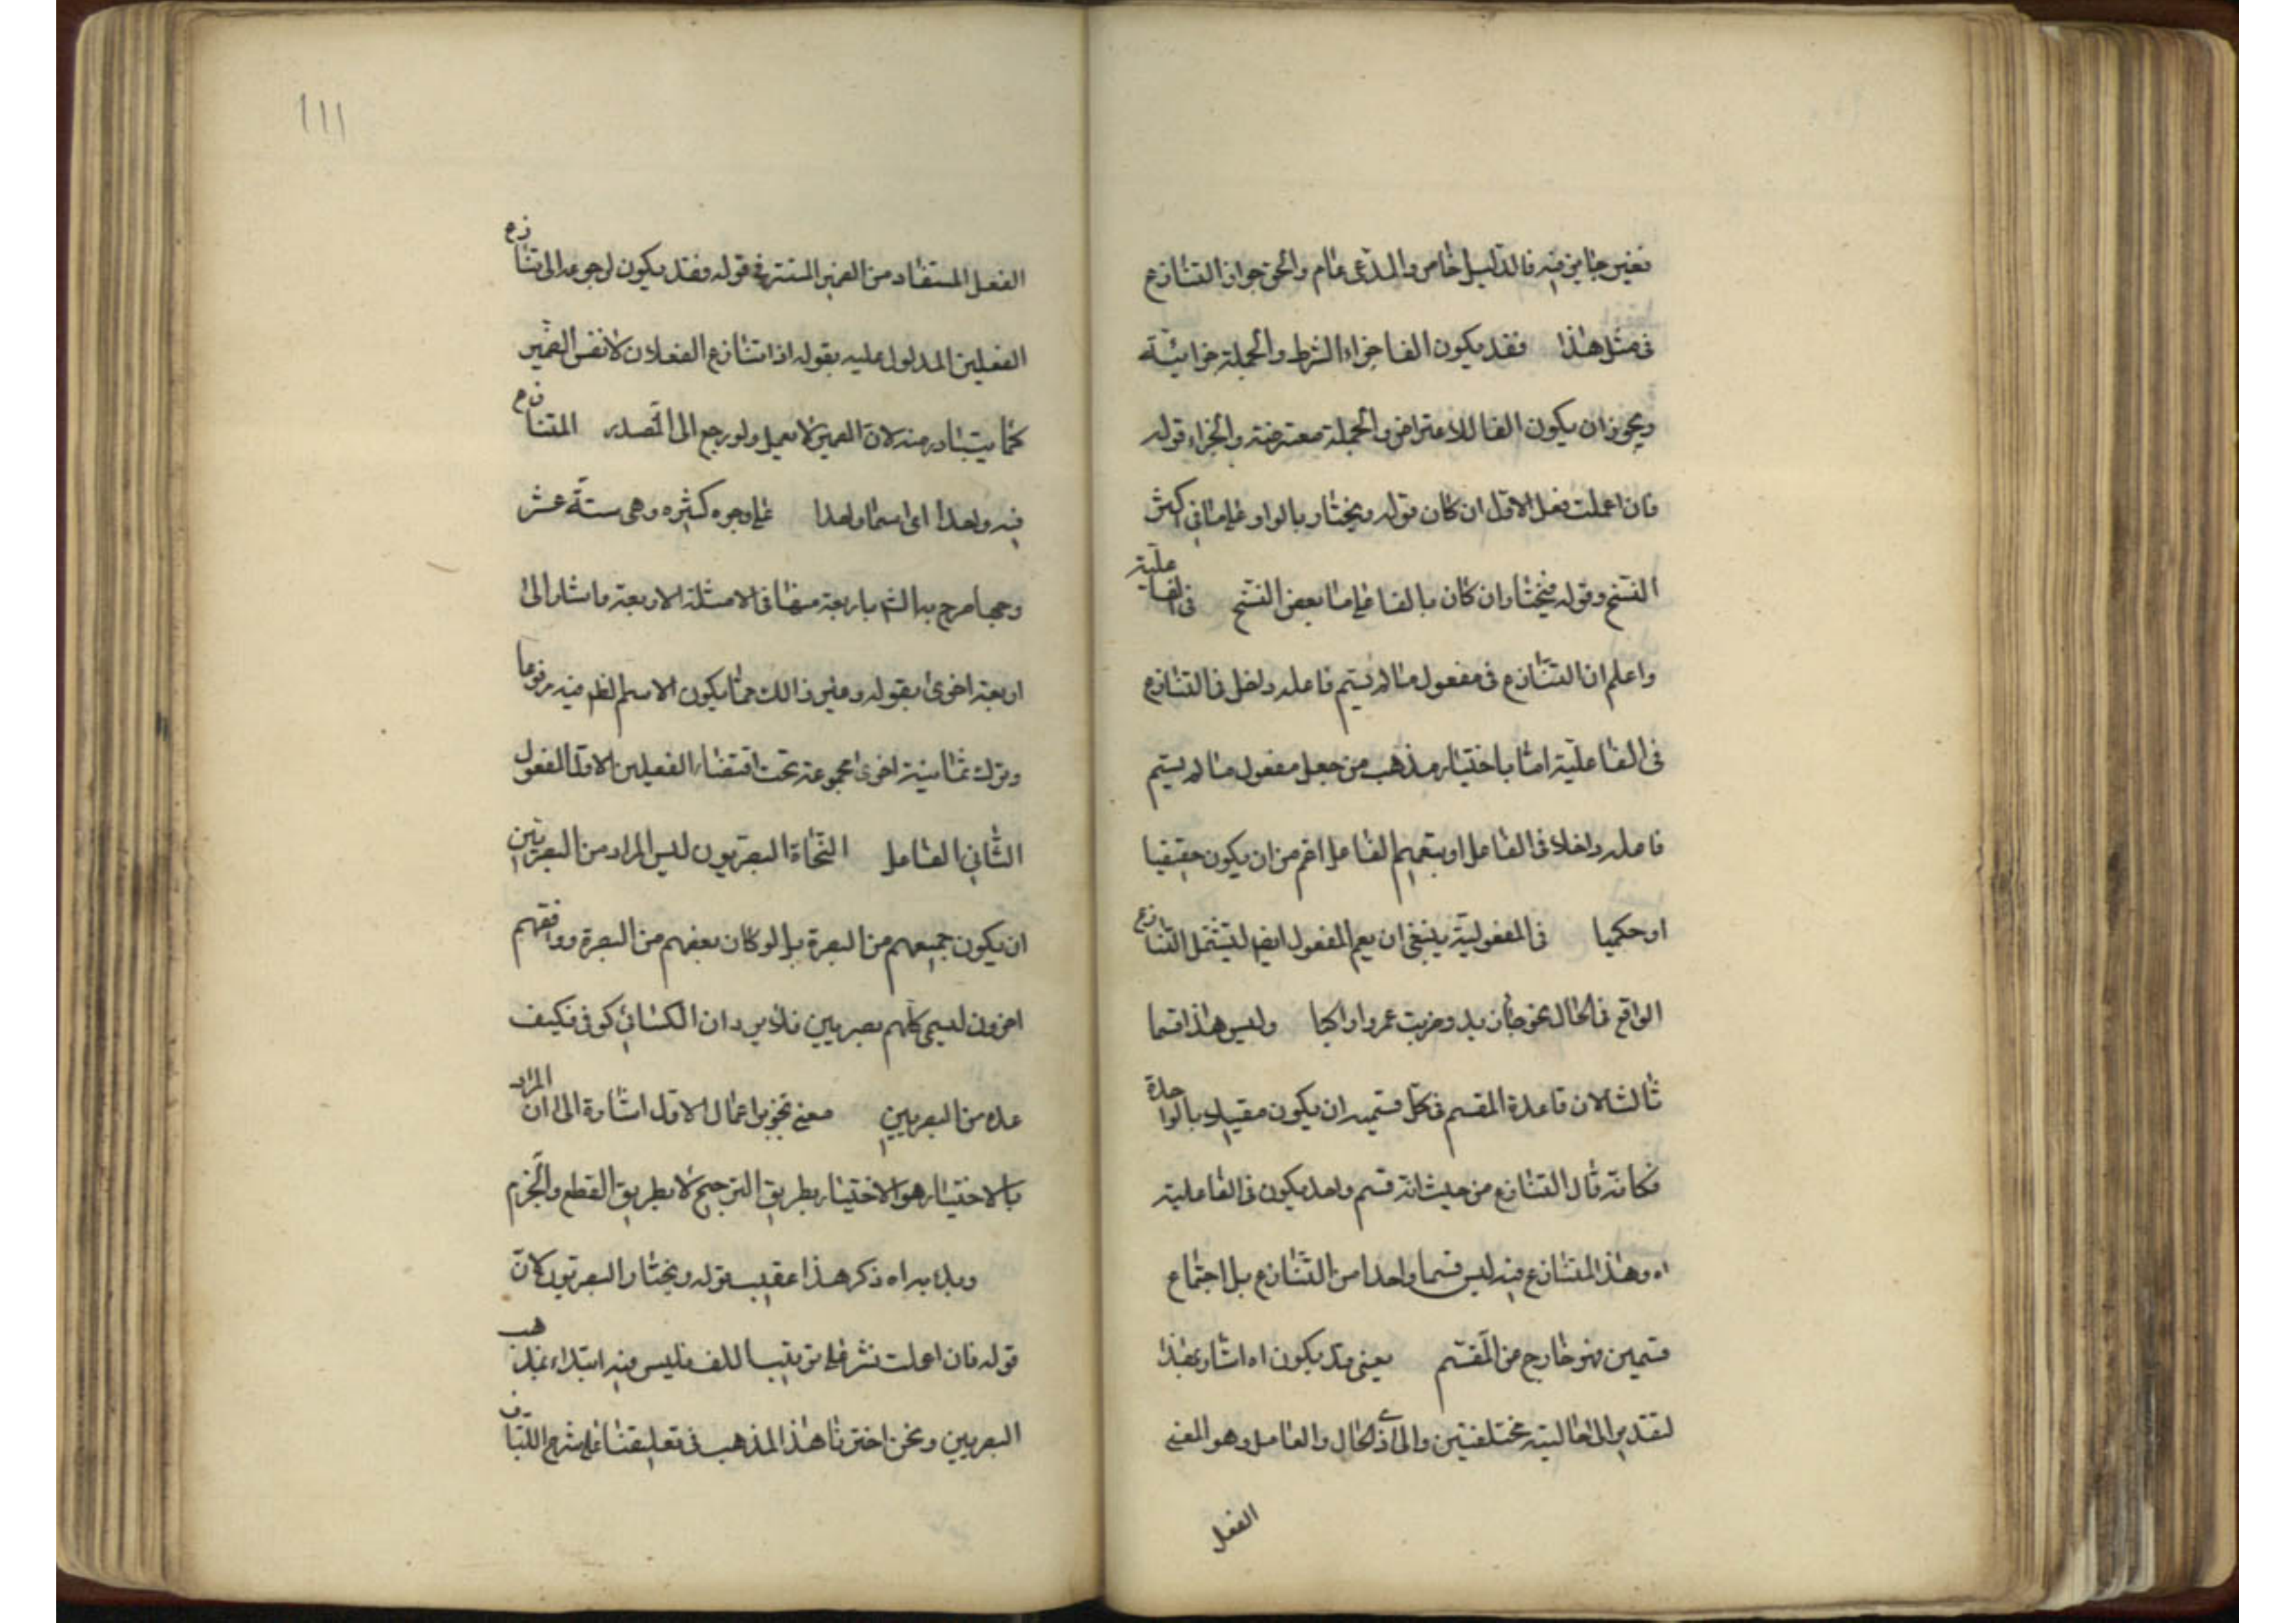 فغير جايز فيه فالدليل خاص والمدعى عام والحق جواز التنازع
فى مثل هذا فقد يكون الفا جزاء الشرط والجملة جزائية
ويجوز ان يكون الفا للاعتراض والجملة معترضة والجزاء قوله
فان اعملت فعل الاول ان كان قوله ويختار بالواو على ما فى اكثر
النسخ وقوله فيختار ان كان بالفا على ما بعض النسخ فى الفاعلية
واعلم ان التنازع فى مفعول ما لم يسم فاعله داخل فى التنازع
فى الفاعلية امّا باختيار مذهب من جعل مفعول ما لم يسم
فاعله داخلا فى الفاعل او بتعميم الفاعل اعم من ان يكون حقيقيا
او حكميا فى المفعولية ينبغى ان يعم المفعول ايضا ليشتمل التنازع
الواقع فى الحال نحو جاء زيد وضربت عمروا راكبا وليس هذا قسما
ثالثا لان قاعدة المقسم فى كل قسم ان يكون مقيدا بالواحدة
فكانه قال التنازع من حيث انه قسم واحد يكون فى الفاعلية
اه وهذا المتنازع فيه ليس قسما واحدا من التنازع بل اجتماع
قسمين فهو خارج من المقسم يعنى قد يكون اه اشار بهذا
لتقدير الى مختلفتين والى ذى الحال والعامل وهو المعنى
الفعل
111
الفعل المستفاد من الضمير المستتر فى قوله فقد يكون لرجوعه الى تنازع
الفعلين المدلول عليه بقوله اذا تنازع الفعلان لا نفس الضمير
كما يتبادر منه لان الضمير لا يعمل ولو رجع الى المصدر المتنازع
فيه واحدا اى اسما واحدا على وجوه كثيره وهى ستة عشر
وجها صرح به الش باربعة منها فى الامثلة الاربعة واشار الى
اربعة اخرى بقوله وغير ذالك مما يكون الاسم الظ فيه مرفوعا
وترك ثمانية اخرى مجموعة تحت اقتضاء الفعلين الاول المفعول
الثانى الفاعل النحاة البصريون ليس المراد من البصريين
ان يكون جميعهم من البصرة بل لو كان بعضهم من البصرة ووافقهم
اخرون ليسمى كلهم بصريين فلا يرد ان الكسائى كوفى فكيف
عده من البصريين معنى تجويز اعمال الاول اشارة الى ان المراد
بالاختيار هو الاختيار بطريق الترجيح لا بطريق القطع والجزم
ذكر هذا عقيب قوله ويختار البصريون كان
قوله فان اعملت نشر على ترتيب اللف فليس فيه ابتداء بمذهب
البصريين ونحن اخترنا هذا المذهب فى تعليقتنا على شرح اللباب